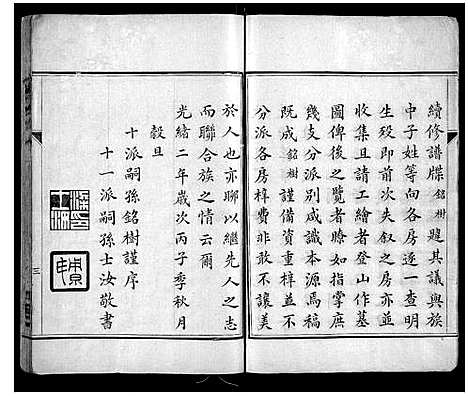 續修譜牒銘樹踶其議與族
中子姓等向各房逐一查明
生殁即前次失叙之房亦並
收集且請工繪者登山作墓
圖俾後之覽者瞭如指掌庶
幾支分派别咸識本源焉稿
既成銘樹謹備資重梓並不
分派各房梓費非敢不讓美
於人也亦聊以繼先人之志
而聯合族之情云爾
光緒二年歲次丙子季秋月
穀旦
十派嗣孫銘樹謹序
十一派嗣孫士汝敬書
三